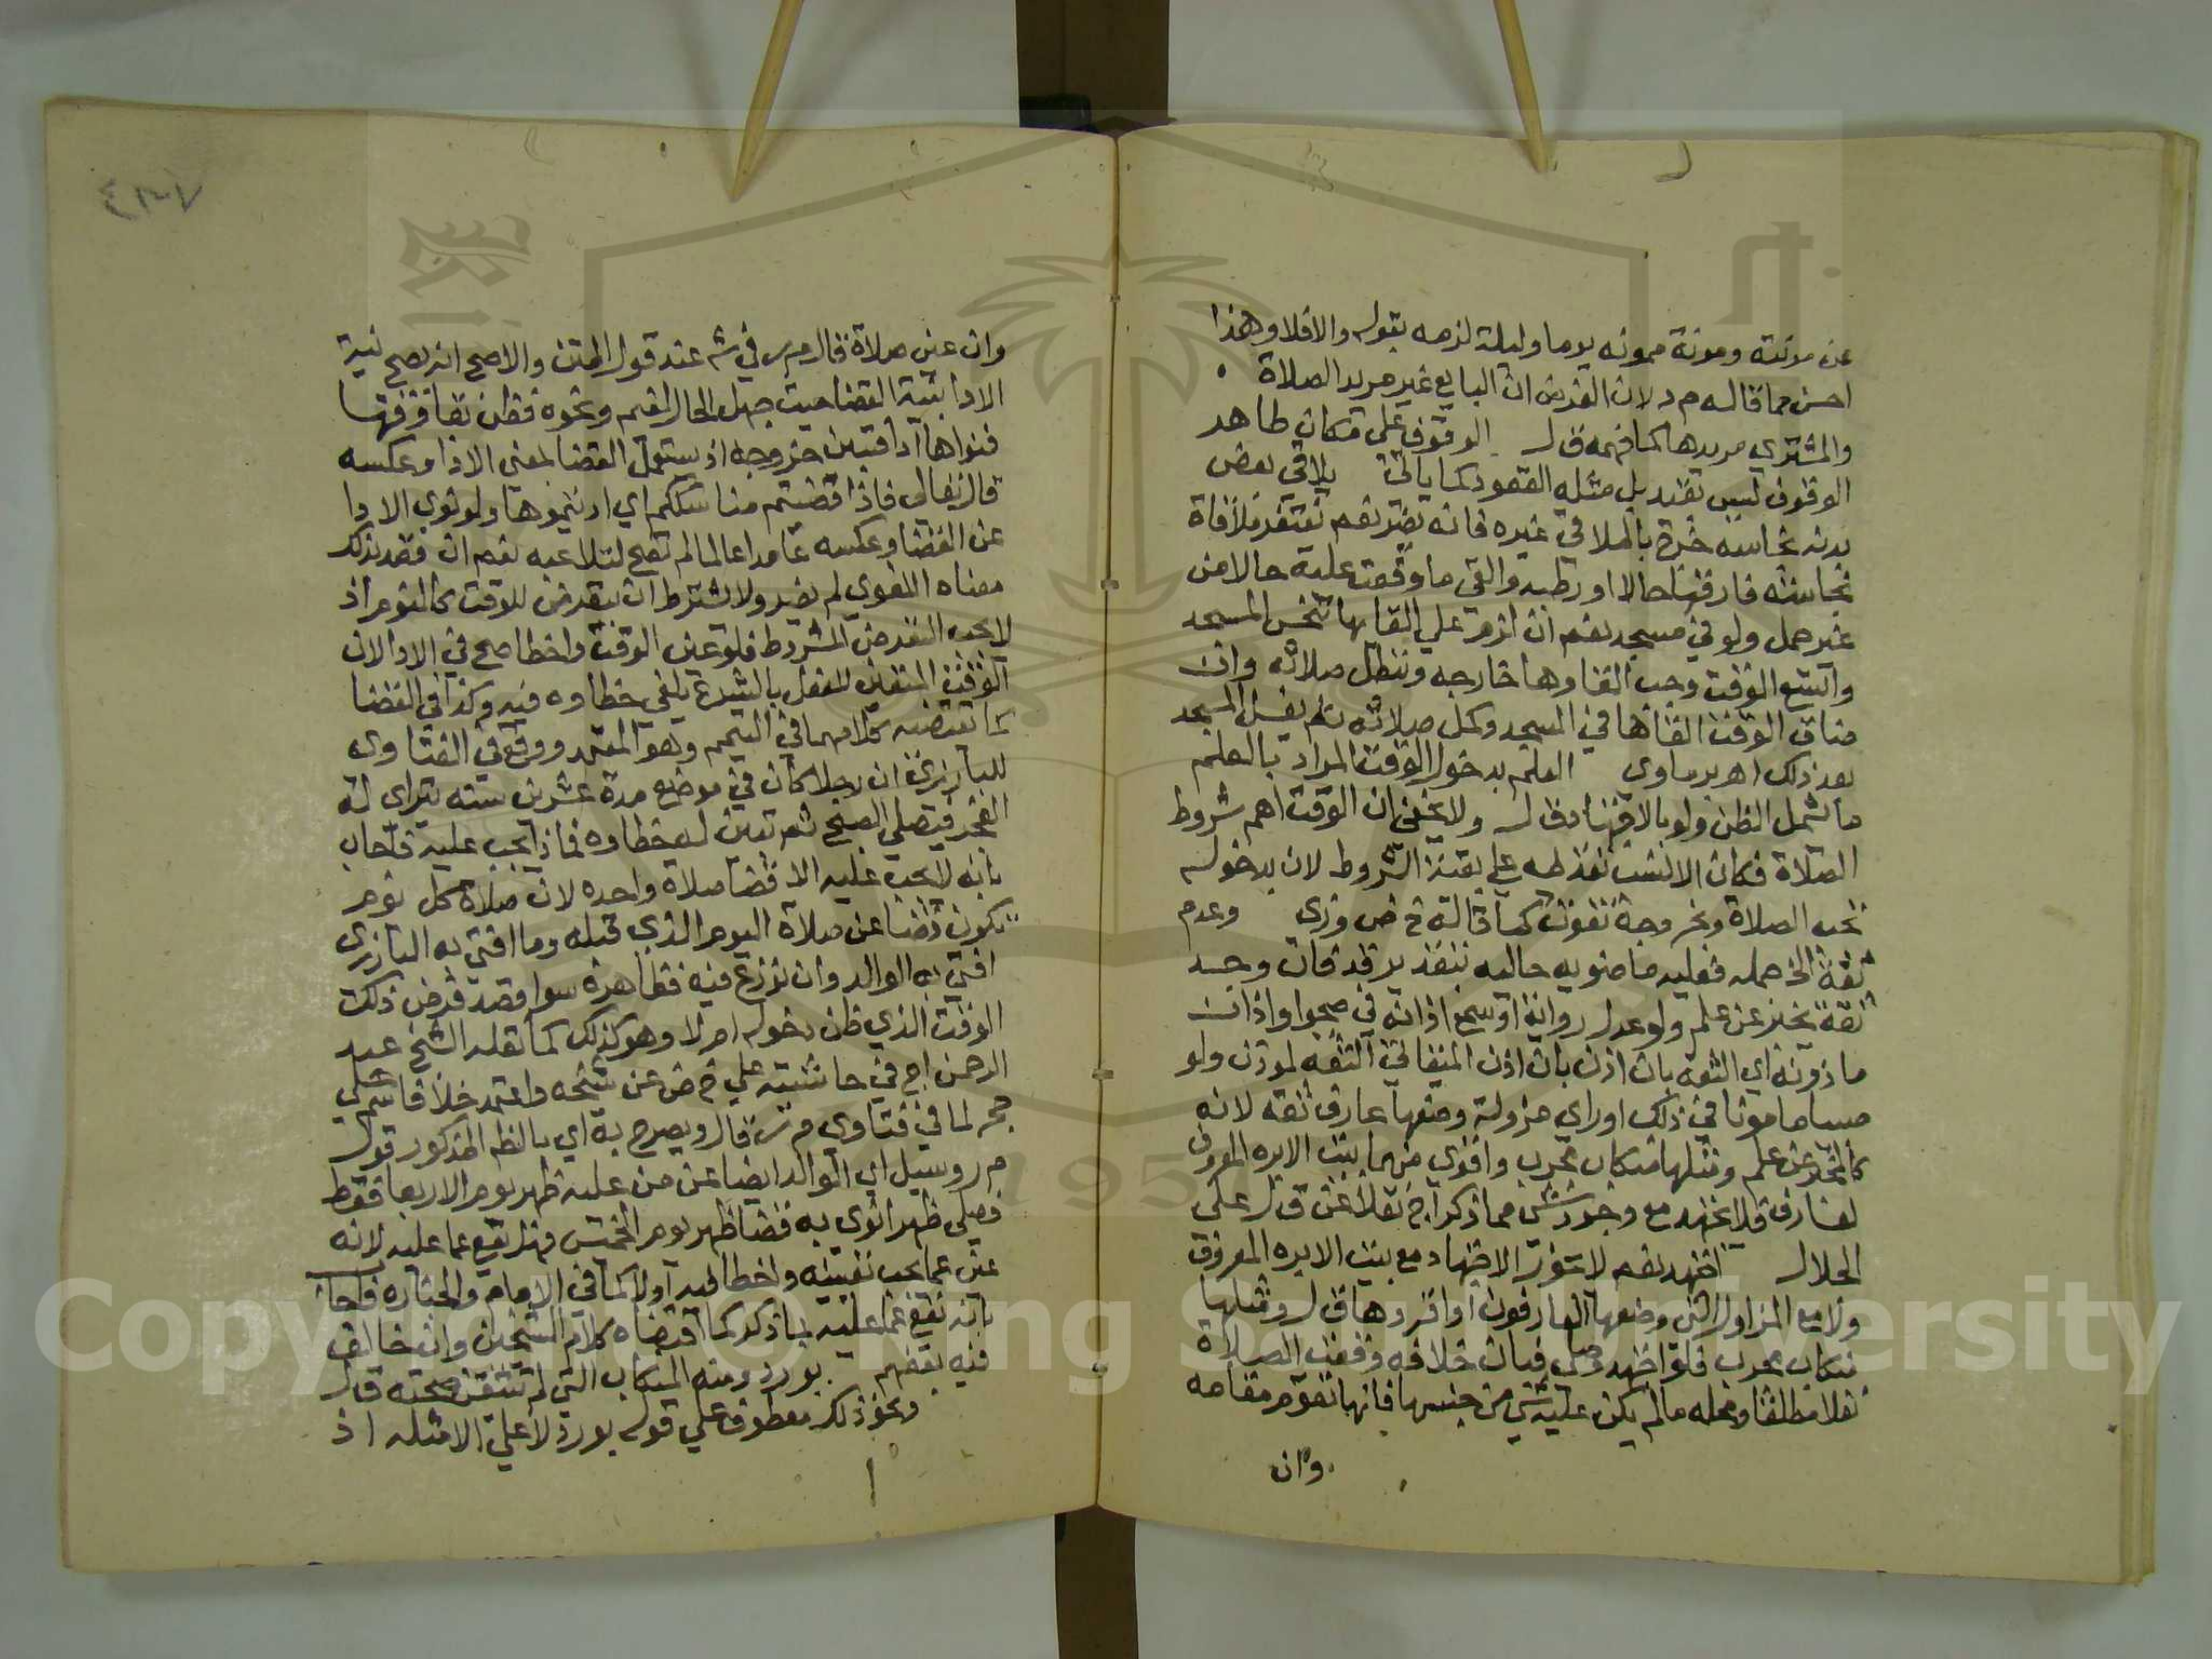 عن مونته ومونة ممونه يوما وليلة لزمه بقوله والافلا وهذا
احسن مما قاله م ر لان الفرض ان البايع غير مريد الصلاة
والمشتري مريدها كما فهمه ق ل الوقوف على مكان طاهر
الوقوف ليس بقيد بل مثله القعود كما ياتي يلاقي بعض
بدنه نجاسة خرج بالملاقي غيره فانه يضر نعم تغتفر ملاقاة
نجاسته فارقها حالا او رطبه والقى ما وقعت عليه حالا من
غير حمل ولو في مسجد نعم ان لزم على القايها تنجس المسجد
واتسع الوقت وجب القاوها خارجه وتبطل صلاته وان
ضاق الوقت القاها في المسجد وكمل صلاته ثم يغسل المسجد
بعد ذلك اهـ برماوي العلم بدخول الوقت المراد بالعلم
ما يشمل الظن ولو بالاجتهاد ق ل ولا يخفى ان الوقت اهم شروط
الصلاة فكان الانسب تقديمه على بقية الشروط لان بدخوله
تجب الصلاة وبخروجه تفوت كما قاله خ ض وزي وعدم
ثقة الخ حمله فعليه ما ضويه حاليه بتقدير قد فان وجد
ثقة يخبر عن علم ولو عدل رواية او سمع اذانه في صحو او اذان
ماذونه اي الثقة بان اذن باذن الميقاتي الثقة لموذن ولو
صبيا مامونا في ذلك او راى مزولة وضعها عارف ثقة لانه
كالمخبر عن علم ومثلها منكاب مجرب واقوى منهما بيت الابره المعروف
لعارف فلا يجتهد مع وجود شي مما ذكر اج نقلا عن ق ل على
الجلال اجتهد نعم لا يجوز الاجتهاد مع بيت الابره المعروف
ولا مع المزاول التي وضعها العارفون او اقروها ق ل ومثلها
منكاب مجرب فلو اجتهد وصلى فبان خلافه وقعت الصلاة
نفلا مطلقا ومحله ما لم يكن عليه شي من جنسها فانها تقوم مقامه
وان
٤٣٧
وان عين صلاة قال م ر في ش عند قول المتن والاصح انه يصح نية
الادا بنية القضا حيث جهل الحال لغيم ونحوه فظن بقا وقتها
فنواها ادا فتبين خروجه اذ يستعمل القضا بمعنى الادا وعكسه
قال تعالى فاذا قضيتم مناسككم اي اديتموها ولو نوى الادا
عن القضا وعكسه عامدا عالما لم تصح لتلاعبه نعم ان قصد بذلك
معناه اللغوي لم يضر ولا يشترط ان يتعرض للوقت كاليوم اذ
لا يجب التعرض للشروط فلو عين الوقت واخطا صح في الادا لان
الوقت المتعين للفعل بالشرع يلغي خطاوه فيه وكذا في القضا
كما تقتضيه كلامهما في التيمم وهو المعتمد ووقع في الفتاوى
للبارزي ان رجلا كان في موضع مدة عشرين سنة يتراى له
الفجر فيصلي الصبح ثم تبين له خطاوه فماذا يجب عليه فاجاب
بانه لا يجب عليه الا قضا صلاة واحده لان صلاة كل يوم
تكون قضا عن صلاة اليوم الذي قبله وما افتى به البازري
افتى به الوالد وان نوزع فيه فظاهره سوا قصد فرض ذلك
الوقت الذي ظن دخوله ام لا وهو كذلك كما نقله الشيخ عبد
الرحمن اج في حاشيته على خ ض عن شيخه واعتمد خلافا سم على
حجر لما في فتاوى م ر قال ويصرح به اي بالظم المذكور قول
م ر وسيل اي الوالد ايضا عمن عليه ظهر يوم الاربعا فقط
فصلى ظهرا نوى به قضا ظهر يوم الخميس فهل يقع عما عليه لانه
عين عما يجب تعيينه واخطا فيه او لا كما في الامام والجنازه فاجاب
بانه يقع عما عليه لما ذكر كما اقتضاه كلام الشيخين وان خالف
فيه بعضهم بورد ومنه المنكاب التي لم تتيقن صحته ق ل
ونحو ذلك معطوف على قوله بورد لا على الامثله اذ
Copyright © King Saud University
1957